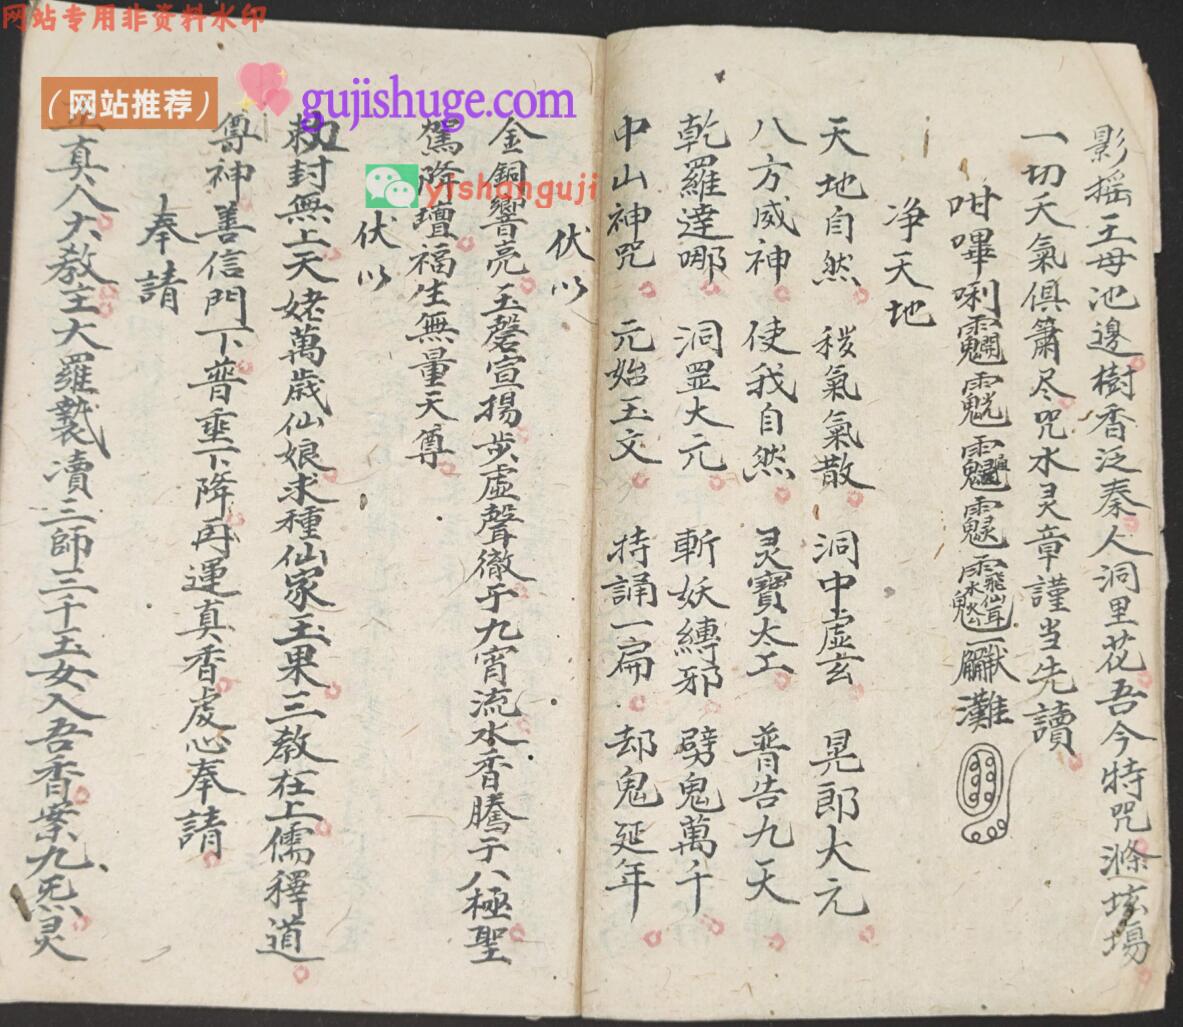 网站专用非资料水印
（网站推荐）
gujishuge.com
yishanguji
影摇王母池邊樹香泛秦人洞里花吾今特咒滌坛場
一切夭氣俱簫尽咒水灵章謹当先讀
咁嗶唎
灘
净天地
天地自然 秽氣氣散 洞中虚玄 晃郎大元
八方威神 使我自然 灵寶太工 普告九天
乾羅達哪 洞罡大元 斬妖縳邪 劈鬼萬千
中山神咒 元始玉文 持誦一扁 却鬼延年
伏以
金銅響亮玉磬宣揚步虚聲徹于九宵流水香騰于八極聖
駕降壇福生無量天尊
伏以
勅封無上天姥萬歲仙娘求種仙家玉果三教在上儒釋道
尊神善信門下普垂下降再運真香虔心奉請
奉請
真人大教主大羅製瀆三師三千玉女入吾香案九炁灵